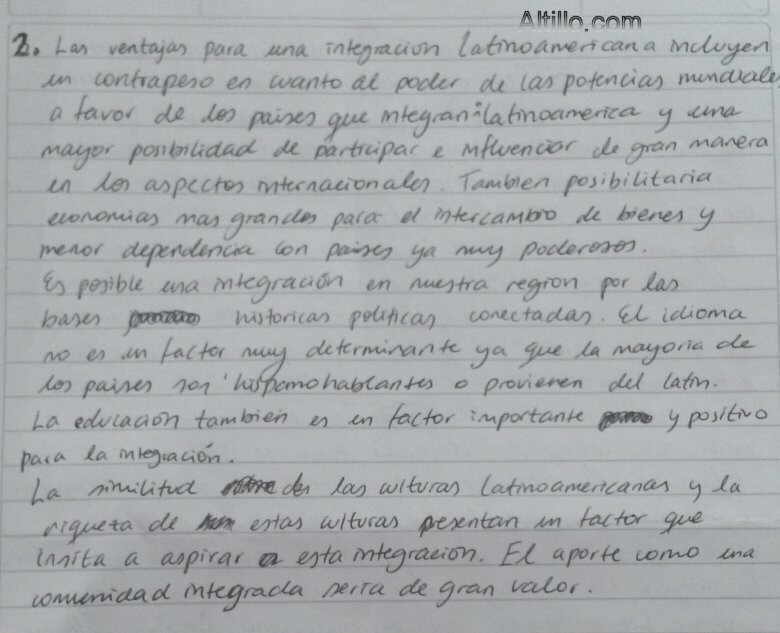 Altillo.com
2. Las ventajas para una integracion latinoamericana incluyen
un contrapeso en cuanto al poder de las potencias mundiales
a favor de los paises que integran latinoamerica y una
mayor posibilidad de participar e influenciar de gran manera
en los aspectos internacionales. Tambien posibilitaria
economias mas grandes para el intercambio de bienes y
menor dependencia con paises ya muy poderosos.
Es posible una integración en nuestra region por las
bases historicas politicas conectadas. El idioma
no es un factor muy determinante ya que la mayoria de
los paises son hispanohablantes o provienen del latin.
La educación tambien es un factor importante y positivo
para la integración.
La similitud de las culturas latinoamericanas y la
riqueza de estas culturas presentan un factor que
invita a aspirar a esta integración. El aporte como una
comunidad integrada seria de gran valor.